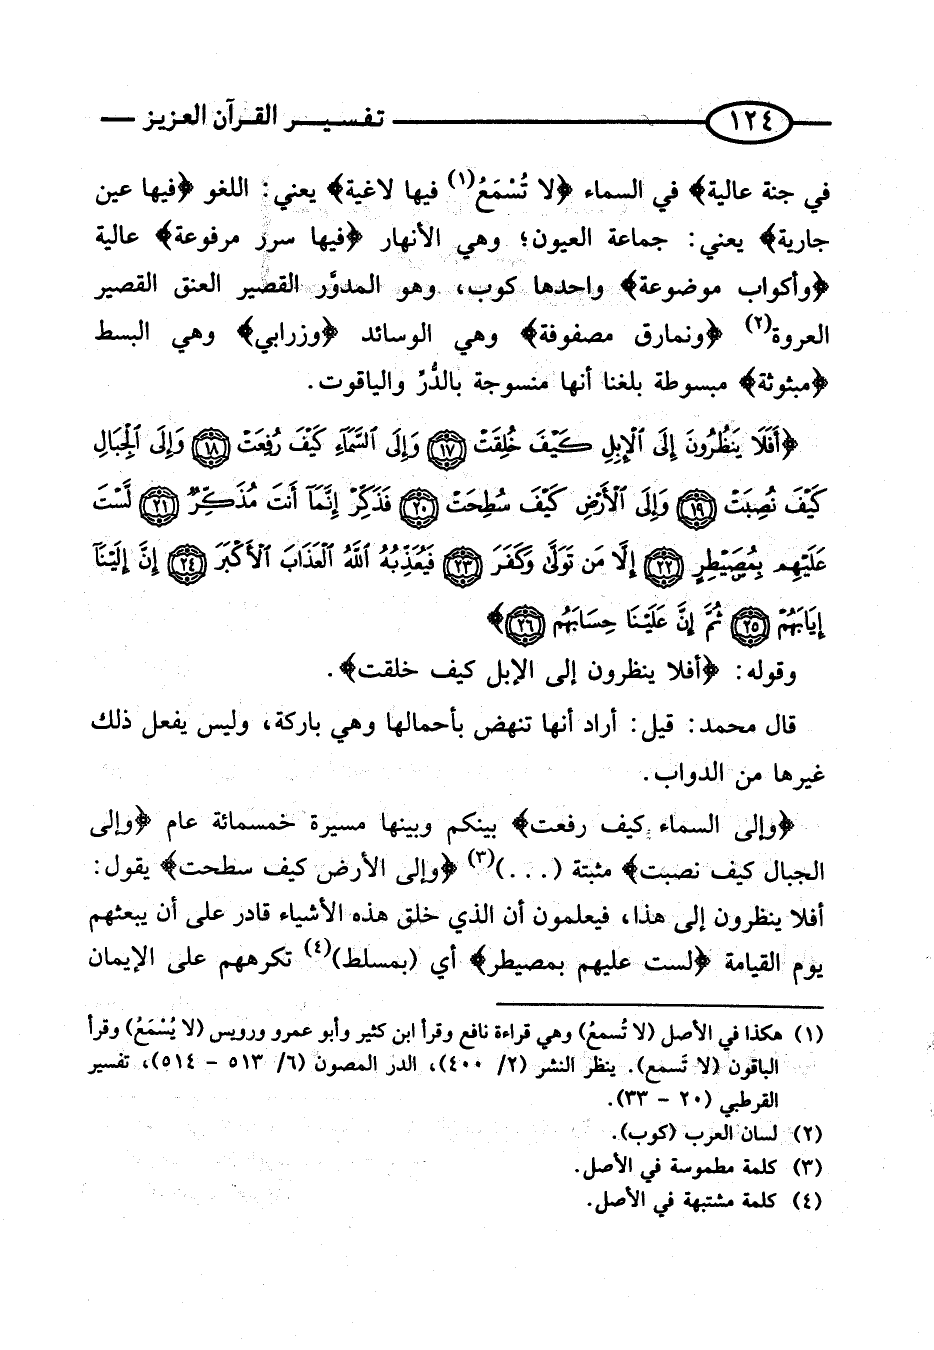 ١٢٤ تفسير القرآن العزيز
في جنة عالية﴾ في السماء ﴿لا تُسْمَعُ(١) فيها لاغية﴾ يعني: اللغو ﴿فيها عين
جارية﴾ يعني: جماعة العيون؛ وهي الأنهار ﴿فيها سرر مرفوعة﴾ عالية
﴿وأكواب موضوعة﴾ واحدها كوب، وهو المدوَّر القصير العنق القصير
العروة(٢) ﴿ونمارق مصفوفة﴾ وهي الوسائد ﴿وزرابي﴾ وهي البسط
﴿مبثوثة﴾ مبسوطة بلغنا أنها منسوجة بالدُّرِّ والياقوت.
﴿أَفَلَا يَنْظُرُونَ إِلَى ٱلْإِبِلِ كَيْفَ خُلِقَتْ ١٧ وَإِلَى ٱلسَّمَآءِ كَيْفَ رُفِعَتْ ١٨ وَإِلَى ٱلْجِبَالِ
كَيْفَ نُصِبَتْ ١٩ وَإِلَى ٱلْأَرْضِ كَيْفَ سُطِحَتْ ٢٠ فَذَكِّرْ إِنَّمَآ أَنتَ مُذَكِّرٌ ٢١ لَّسْتَ
عَلَيْهِم بِمُصَيْطِرٍ ٢٢ إِلَّا مَن تَوَلَّىٰ وَكَفَرَ ٢٣ فَيُعَذِّبُهُ ٱللَّهُ ٱلْعَذَابَ ٱلْأَكْبَرَ ٢٤ إِنَّ إِلَيْنَآ
إِيَابَهُمْ ٢٥ ثُمَّ إِنَّ عَلَيْنَا حِسَابَهُم ٢٦﴾
وقوله: ﴿أفلا ينظرون إلى الإبل كيف خلقت﴾.
قال محمد: قيل: أراد أنها تنهض بأحمالها وهي باركة، وليس يفعل ذلك
غيرها من الدواب.
﴿وإلى السماء كيف رفعت﴾ بينكم وبينها مسيرة خمسمائة عام ﴿وإلى
الجبال كيف نصبت﴾ مثبتة (...)(٣) ﴿وإلى الأرض كيف سطحت﴾ يقول:
أفلا ينظرون إلى هذا، فيعلمون أن الذي خلق هذه الأشياء قادر على أن يبعثهم
يوم القيامة ﴿لست عليهم بمصيطر﴾ أي (بمسلط)(٤) تكرههم على الإيمان
(١) هكذا في الأصل (لا تُسمعُ) وهي قراءة نافع وقرأ ابن كثير وأبو عمرو ورويس (لا يُسْمَعُ) وقرأ
الباقون (لا تَسمع). ينظر النشر (٢/ ٤٠٠)، الدر المصون (٦/ ٥١٣ - ٥١٤)، تفسير
القرطبي (٢٠ - ٣٣).
(٢) لسان العرب (كوب).
(٣) كلمة مطموسة في الأصل.
(٤) كلمة مشتبهة في الأصل.